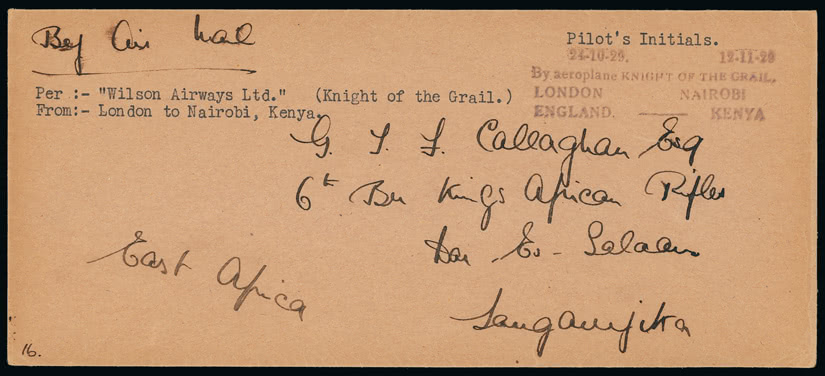 By Air Mail
Pilot's Initials.
24-10-29. 12-11-29
By aeroplane KNIGHT OF THE GRAIL.
LONDON NAIROBI
ENGLAND. — KENYA
Per :- "Wilson Airways Ltd." (Knight of the Grail.)
From:- London to Nairobi, Kenya.
Callaghan Esq
6th Bn Kings African Rifles
Dar - Es - Salaam
East Africa
Tanganyika
16.